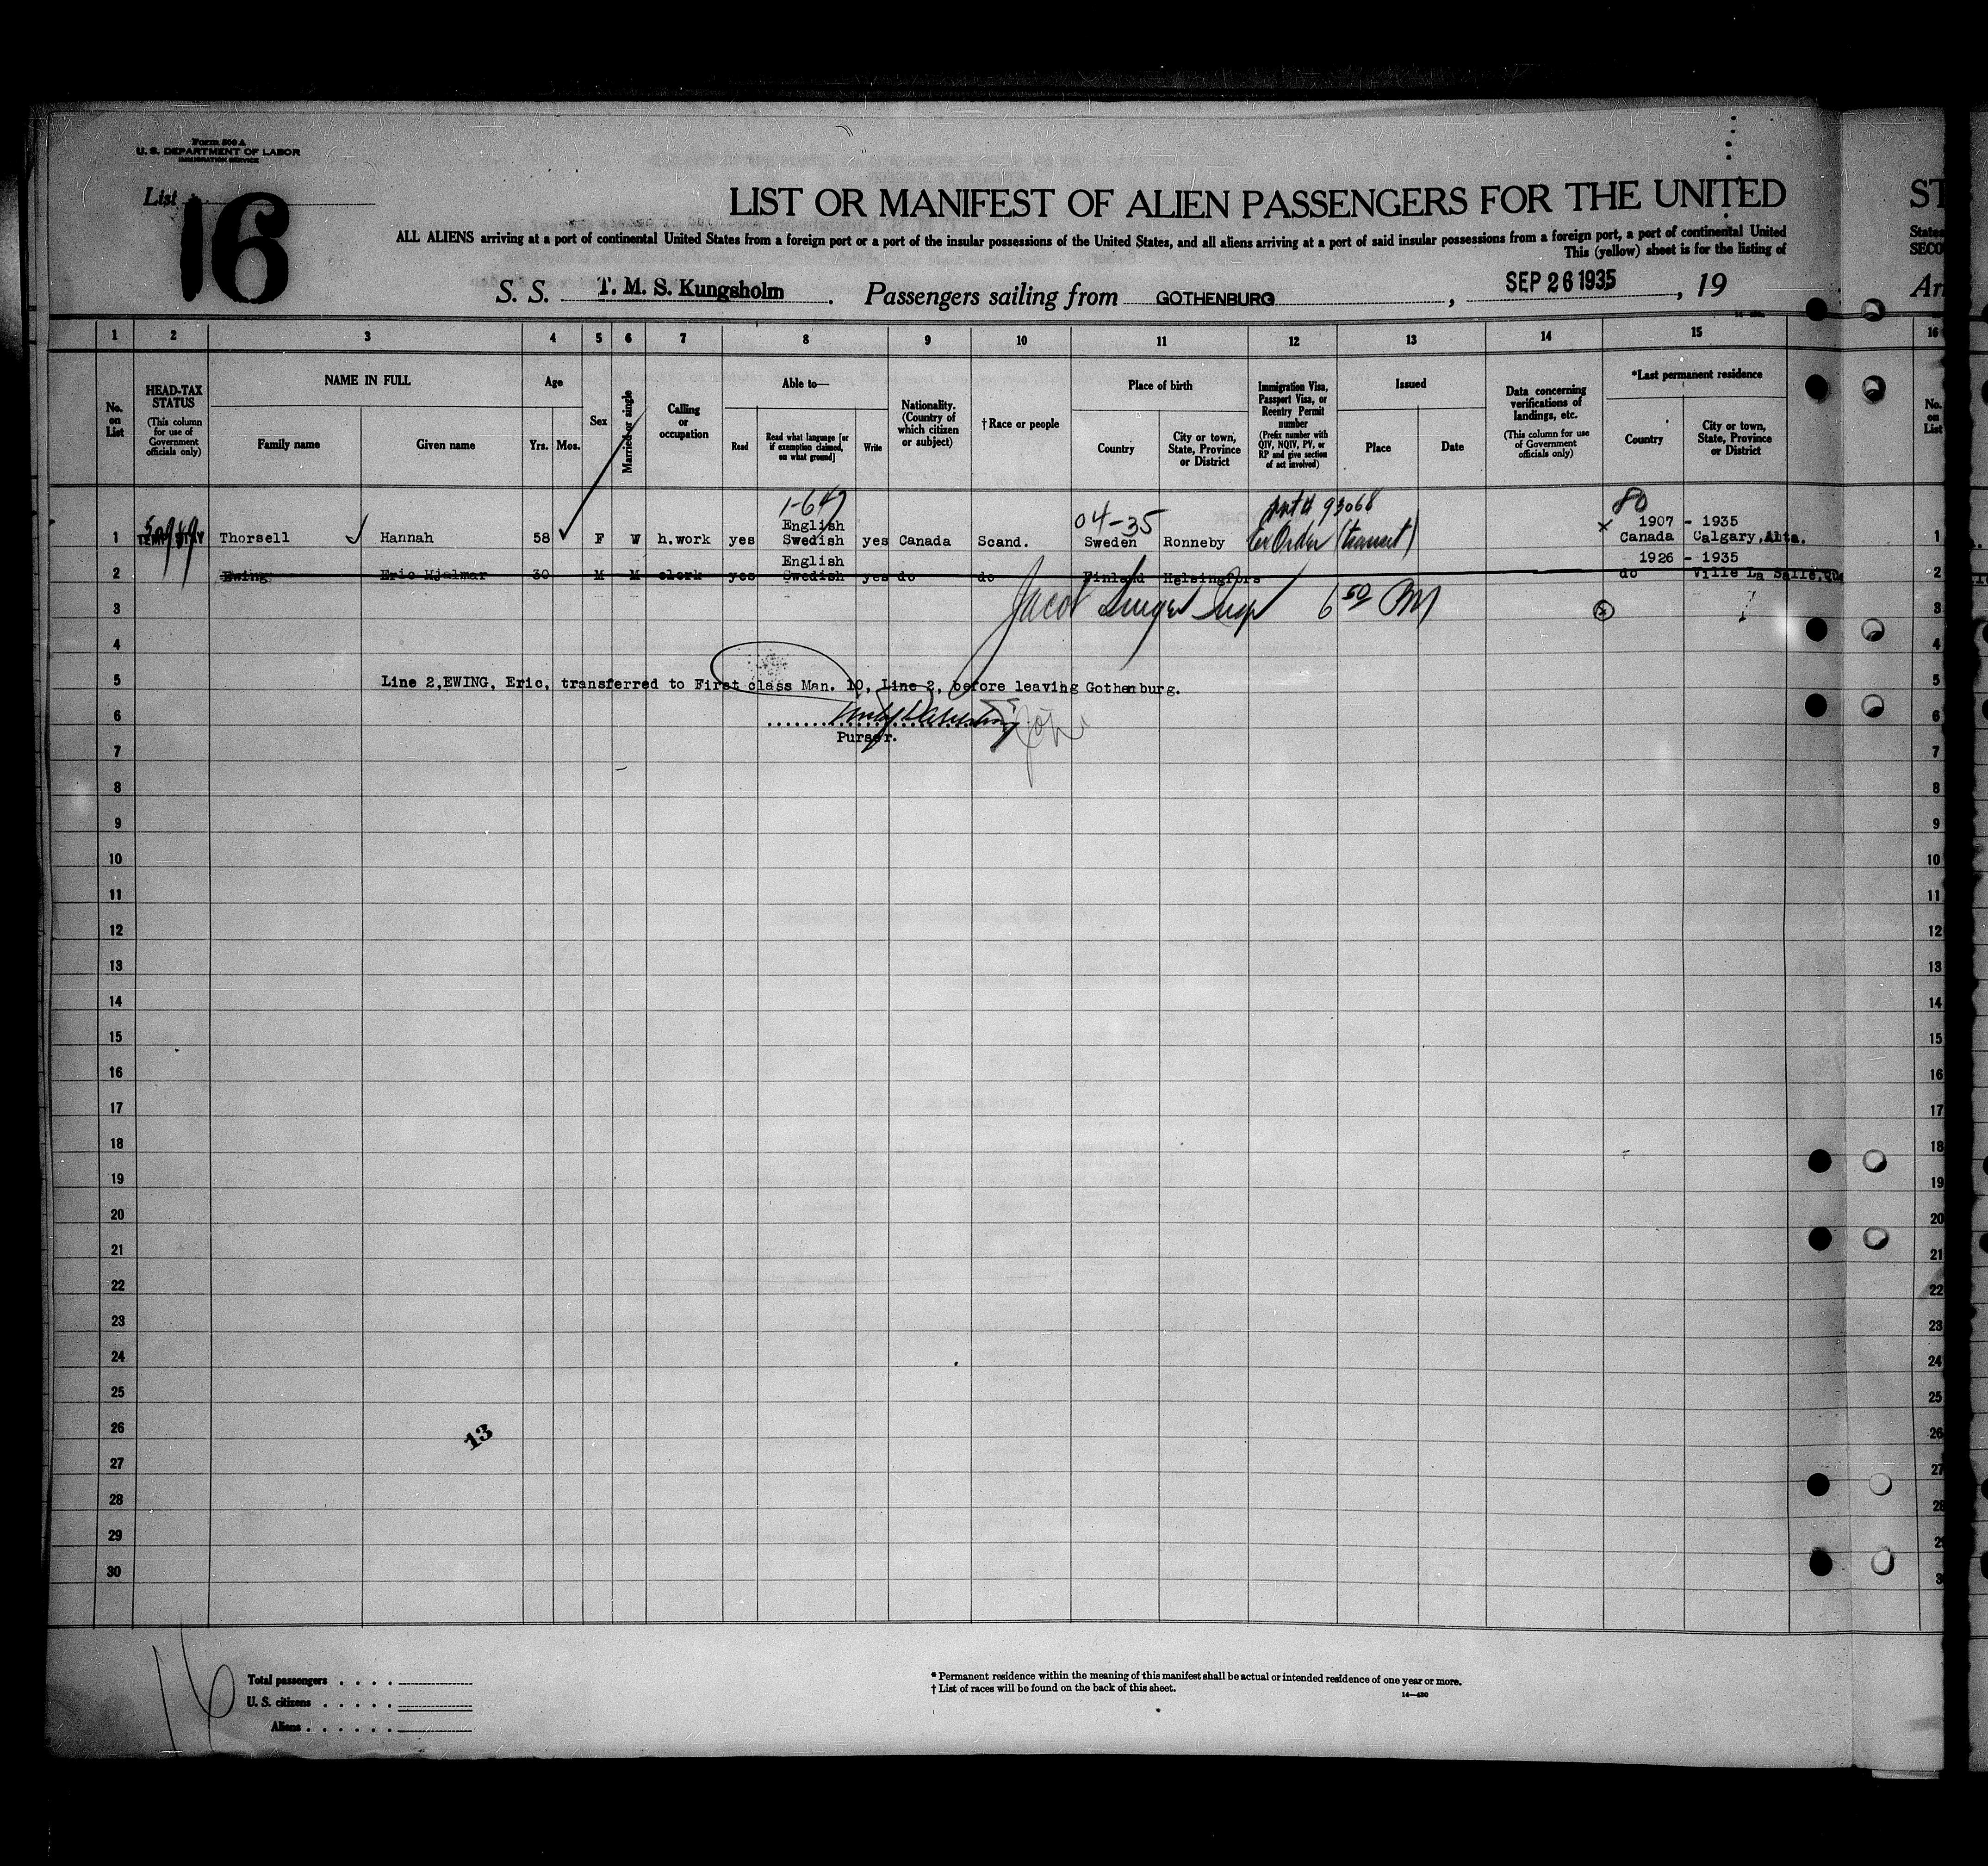 Form 500 A
U. S. DEPARTMENT OF LABOR
IMMIGRATION SERVICE
List 16
LIST OR MANIFEST OF ALIEN PASSENGERS FOR THE UNITED
ST
ALL ALIENS arriving at a port of continental United States from a foreign port or a port of the insular possessions of the United States, and all aliens arriving at a port of said insular possessions from a foreign port, a port of continental United
States
This (yellow) sheet is for the listing of
SECO
S. S. T. M. S. Kungsholm. Passengers sailing from GOTHENBURG, SEP 26 1935, 19
Arr
1 2 3 4 5 6 7 8 9 10 11 12 13 14 15 16
No. on List
HEAD-TAX STATUS (This column for use of Government officials only)
NAME IN FULL
Family name Given name
Age
Yrs. Mos.
Sex
Married or single
Calling or occupation
Able to—
Read
Read what language [or if exemption claimed, on what ground]
Write
Nationality. (Country of which citizen or subject)
†Race or people
Place of birth
Country
City or town, State, Province or District
Immigration Visa, Passport Visa, or Reentry Permit number (Prefix number with QIV, NQIV, PV, or RP and give section of act involved)
Issued
Place Date
Data concerning verifications of landings, etc. (This column for use of Government officials only)
*Last permanent residence
Country
City or town, State, Province or District
No. on List
1-647 04-35 93068 80
English 1907 - 1935
1 TEMP STAY Thorsell Hannah 58 F W h.work yes Swedish yes Canada Scand. Sweden Ronneby Ex Order (transit) Canada Calgary, Alta. 1
English 1926 - 1935
2 Ewing Eric Hjalmar 30 M M clerk yes Swedish yes do do Finland Helsingfors do Ville La Salle, Qu 2
3 Jacob Insp 6 50 PM 3
4 4
5 Line 2, EWING, Eric, transferred to First class Man. 10, Line 2, before leaving Gothenburg. 5
6 6
7 Purser. 7
8 8
9 9
10 10
11 11
12 12
13 13
14 14
15 15
16 16
17 17
18 18
19 19
20 20
21 21
22 22
23 23
24 24
25 25
26 13 26
27 27
28 28
29 29
30 3
16
Total passengers
U. S. citizens
Aliens
* Permanent residence within the meaning of this manifest shall be actual or intended residence of one year or more.
† List of races will be found on the back of this sheet.
14—430